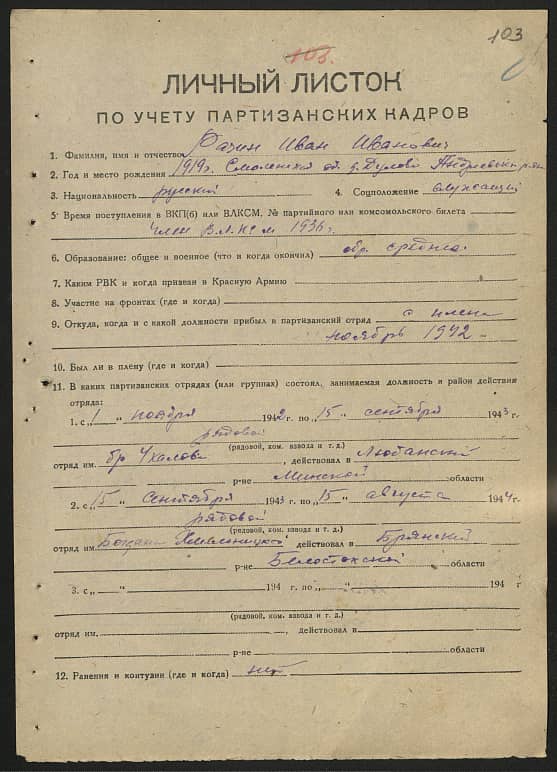 103
103.
ЛИЧНЫЙ ЛИСТОК
ПО УЧЕТУ ПАРТИЗАНСКИХ КАДРОВ
1. Фамилия, имя и отчество Фагин Иван Иванович
2. Год и место рождения 1919 г. Смоленская об. д. Дулово
3. Национальность русский 4. Соцположение служащий
5. Время поступления в ВКП(б) или ВЛКСМ, № партийного или комсомольского билета
член ВЛКСМ 1936 г.
6. Образование: общее и военное (что и когда окончил) обр. среднее
7. Каким РВК и когда призван в Красную Армию
8. Участие на фронтах (где и когда)
9. Откуда, когда и с какой должности прибыл в партизанский отряд с плена
ноябрь 1942
10. Был ли в плену (где и когда)
11. В каких партизанских отрядах (или группах) состоял, занимаемая должность и район действия
отряда:
1. с „1" ноября 1942 г. по „15" сентября 1943 г.
рядовой
(рядовой, ком. взвода и т. д.)
отряд им. бр Чкалова, действовал в Любанский
р-не Минской области
2. с „15" сентября 1943 г. по „15" августа 1944 г.
рядовой
(рядовой, ком. взвода и т. д.)
отряд им. Богдана Хмельницкого действовал в Брянский
р-не Белостокской области
3. с „ " 194 г. по „ " 194 г
(рядовой, ком. взвода и т. д.)
отряд им. , действовал в
р-не области
12. Ранения и контузии (где и когда) нет